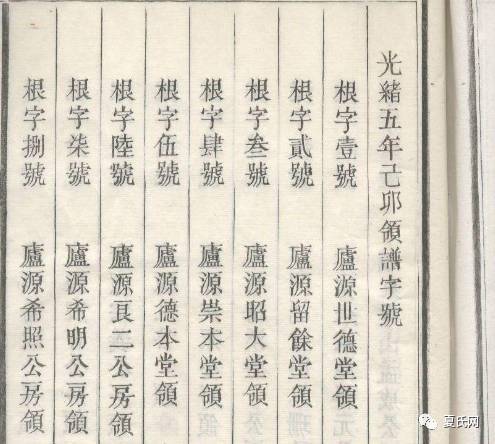 光緒五年己卯領譜字號
根字壹號 廬源世德堂領
根字貳號 廬源留餘堂領
根字叁號 廬源昭大堂領
根字肆號 廬源崇本堂領
根字伍號 廬源德本堂領
根字陸號 廬源良二公房領
根字柒號 廬源希明公房領
根字捌號 廬源希照公房領
夏氏网